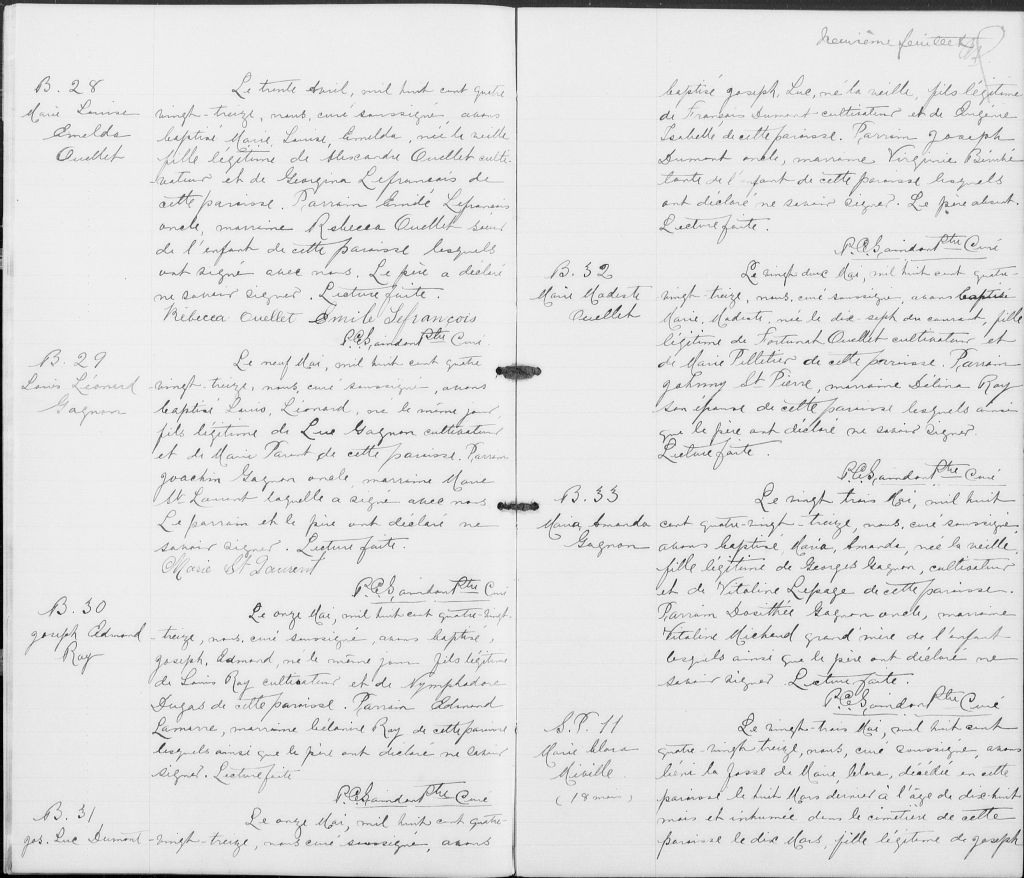 B. 28
Marie Louise
Emelda
Ouellet
Le trente Avril, mil huit cent quatre
vingt-treize, nous, curé soussigné, avons
baptisé Marie, Louise, Emelda, née la veille
fille légitime de Alexandre Ouellet culti-
vateur et de Georgina Lefrancois de
cette paroisse. Parrain Emile Lefrancois
oncle, marraine Rebecca Ouellet soeur
de l'enfant de cette paroisse lesquels
ont signé avec nous. Le père a déclaré
ne savoir signer. Lecture faite.
Rébecca Ouellet Émile Lefrançois
P.C. Saindon Ptre Curé
B. 29
Louis Léonard
Gagnon
Le neuf Mai, mil huit cent quatre
-vingt-treize, nous, curé soussigné, avons
baptisé Louis, Léonard, né le même jour,
fils légitime de Luc Gagnon cultivateur
et de Marie Parent de cette paroisse. Parrain
Joachim Gagnon oncle, marraine Marie
St Laurent laquelle a signé avec nous
Le parrain et le père ont déclaré ne
savoir signer. Lecture faite.
Marie St Laurent
P.C. Saindon Ptre Curé
B. 30
Joseph Edmond
Roy
Le onze Mai, mil huit cent quatre-vingt
-treize, nous, curé soussigné, avons baptisé,
Joseph, Edmond, né le même jour fils légitime
de Louis Roy cultivateur et de Nymphodore
Dugas de cette paroisse. Parrain Edmond
Lamarre, marraine Roy de cette paroisse
lesquels ainsi que le père ont déclaré ne savoir
signer. Lecture faite
P.C. Saindon Ptre Curé
B. 31
Jos. Luc Dumont
Le onze Mai, mil huit cent quatre-
-vingt-treize, nous curé soussigné, avons
Neuvième feuillet
baptisé Joseph, Luc, né la veille, fils légitime
de Francois Dumont cultivateur et de
Isabelle de cette paroisse. Parrain Joseph
Dumont oncle, marraine Virginie Bérubé
tante de l'enfant de cette paroisse lesquels
ont déclaré ne savoir signer. Le père absent.
Lecture faite.
P.C. Saindon Ptre Curé
B. 32
Marie Modeste
Ouellet
Le vingt deux Mai, mil huit cent quatre-
vingt-treize, nous, curé soussigné, avons baptisé
Marie, Modeste, née le dix-sept du courant, fille
légitime de Fortunat Ouellet cultivateur et
de Marie Pelletier de cette paroisse. Parrain
Johnny St Pierre, marraine Délina Roy
son épouse de cette paroisse lesquels ainsi
que le père ont déclaré ne savoir signer.
Lecture faite.
P.C. Saindon Ptre Curé
B. 33
Maria Amanda
Gagnon
Le vingt trois Mai, mil huit
cent quatre-vingt-treize, nous, curé soussigné
avons baptisé Maria, Amanda, née la veille,
fille légitime de Georges Gagnon, cultivateur
et de Vitaline Lepage de cette paroisse.
Parrain Dosithée Gagnon oncle, marraine
Vitaline Michaud grand'mère de l'enfant
lesquels ainsi que le père ont déclaré ne
savoir signer Lecture faite.
P.C. Saindon Ptre Curé
S.P. 11
Marie Clara
Miville
(18 mois)
Le vingt-trois Mai, mil huit cent
quatre-vingt treize, nous, curé soussigné, avons
béni la fosse de Marie, Clara, décédée en cette
paroisse le huit Mars dernier à l'âge de dix huit
mois et inhumée dans le cimetière de cette
paroisse le dix Mars, fille légitime de Joseph